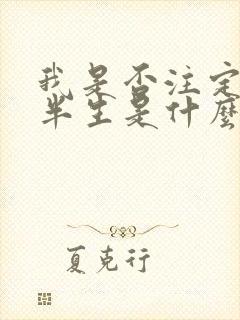 我是否注定
半生是什麼
夏克行